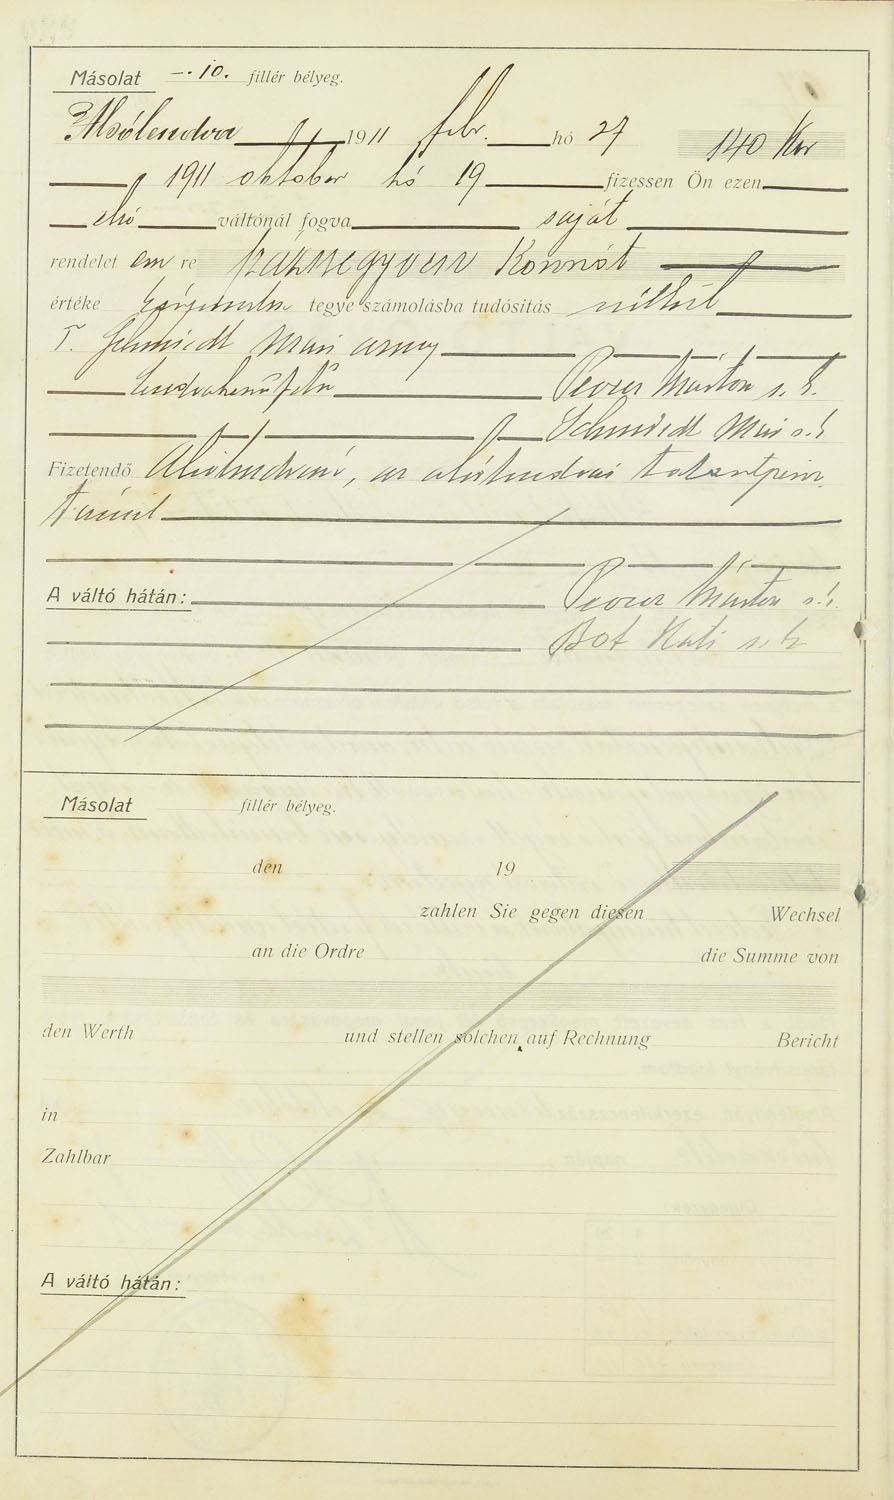 Másolat –.10. fillér bélyeg.
Alsólendva 1911 febr. hó 27 140 Kor
1911 oktober hó 19 fizessen Ön ezen
első váltónál fogva saját
rendelet em re száznegyven Koronát
értéke tegye számolásba tudósítás nélkül
T. Schmiedt Mári
Schmiedt Mári s.k.
Fizetendő Alsólendván, az alsólendvai takarékpénz
tárnál
A váltó hátán:
Bót Kati s.k
Másolat fillér bélyeg.
den 19
zahlen Sie gegen diesen Wechsel
an die Ordre die Summe von
den Werth und stellen solchen auf Rechnung Bericht
in
Zahlbar
A váltó hátán: